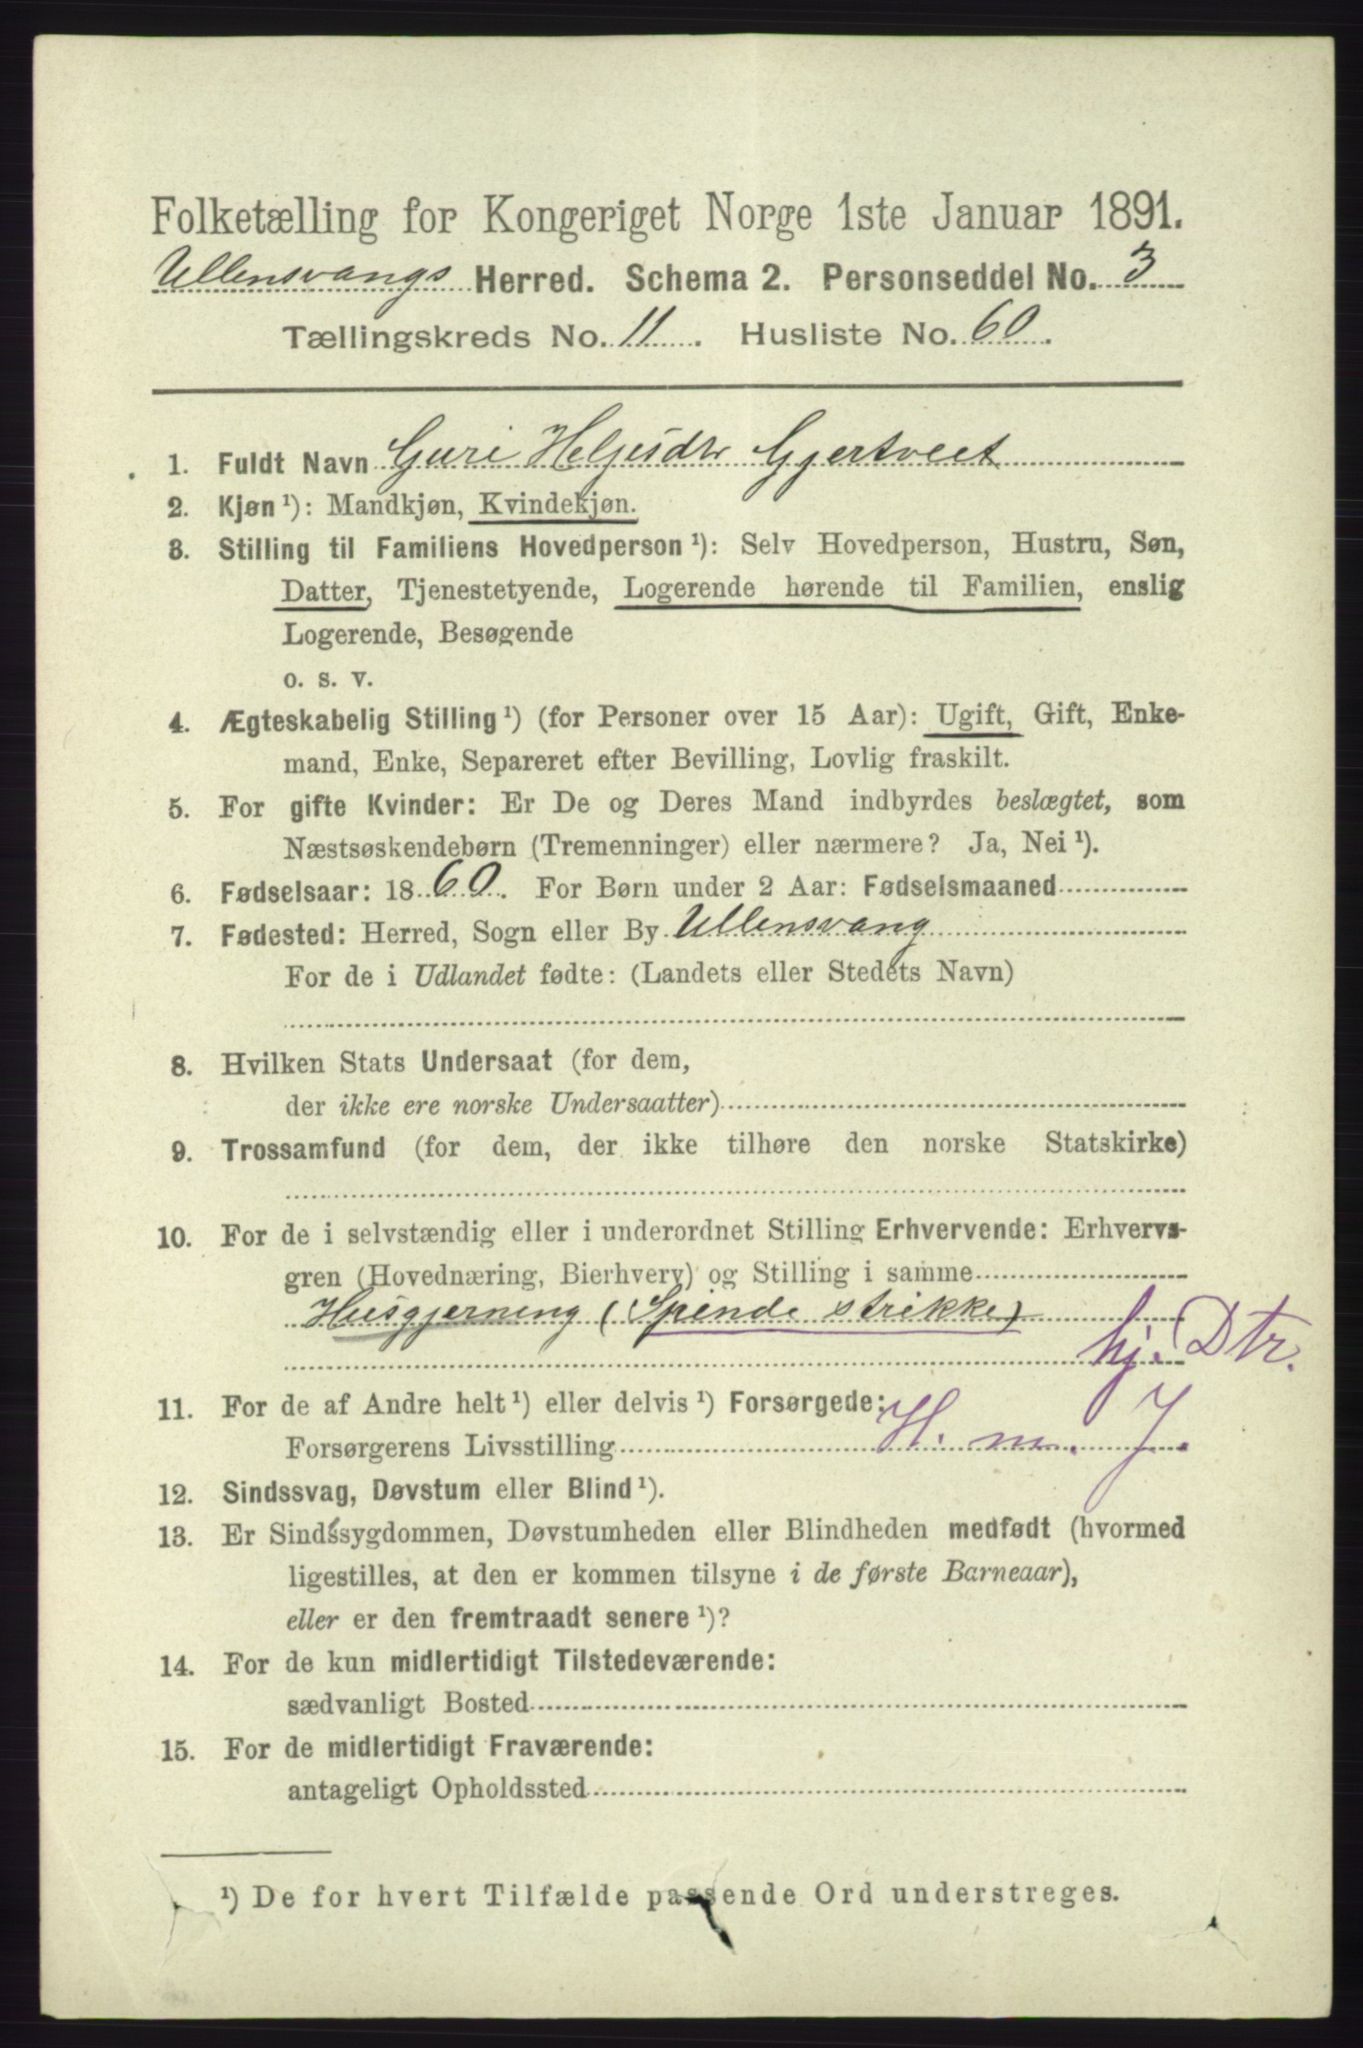 Folketælling for Kongeriget Norge 1ste Januar 1891.
Ullensvangs Herred. Schema 2. Personseddel No. 3
Tællingskreds No. 11. Husliste No. 60.
1. Fuldt Navn Guri Helgesdtr Gjertveet
2. Kjøn ¹): Mandkjøn, Kvindekjøn.
3. Stilling til Familiens Hovedperson ¹): Selv Hovedperson, Hustru, Søn,
Datter, Tjenestetyende, Logerende hørende til Familien, enslig
Logerende, Besøgende
o. s. v.
4. Ægteskabelig Stilling ¹) (for Personer over 15 Aar): Ugift, Gift, Enke-
mand, Enke, Separeret efter Bevilling, Lovlig fraskilt.
5. For gifte Kvinder: Er De og Deres Mand indbyrdes beslægtet, som
Næstsøskendebørn (Tremenninger) eller nærmere? Ja, Nei ¹).
6. Fødselsaar: 1860. For Børn under 2 Aar: Fødselsmaaned
7. Fødested: Herred, Sogn eller By Ullensvang
For de i Udlandet fødte: (Landets eller Stedets Navn)
8. Hvilken Stats Undersaat (for dem,
der ikke ere norske Undersaatter)
9. Trossamfund (for dem, der ikke tilhøre den norske Statskirke)
10. For de i selvstændig eller i underordnet Stilling Erhvervende: Erhvervs-
gren (Hovednæring, Bierhverv) og Stilling i samme
Husgjerning (Spinde strikke)
hj. Dtr.
11. For de af Andre helt ¹) eller delvis ¹) Forsørgede:
Forsørgerens Livsstilling H. m. J.
12. Sindssvag, Døvstum eller Blind ¹).
13. Er Sindssygdommen, Døvstumheden eller Blindheden medfødt (hvormed
ligestilles, at den er kommen tilsyne i de første Barneaar),
eller er den fremtraadt senere ¹)?
14. For de kun midlertidigt Tilstedeværende:
sædvanligt Bosted
15. For de midlertidigt Fraværende:
antageligt Opholdssted
¹) De for hvert Tilfælde passende Ord understreges.